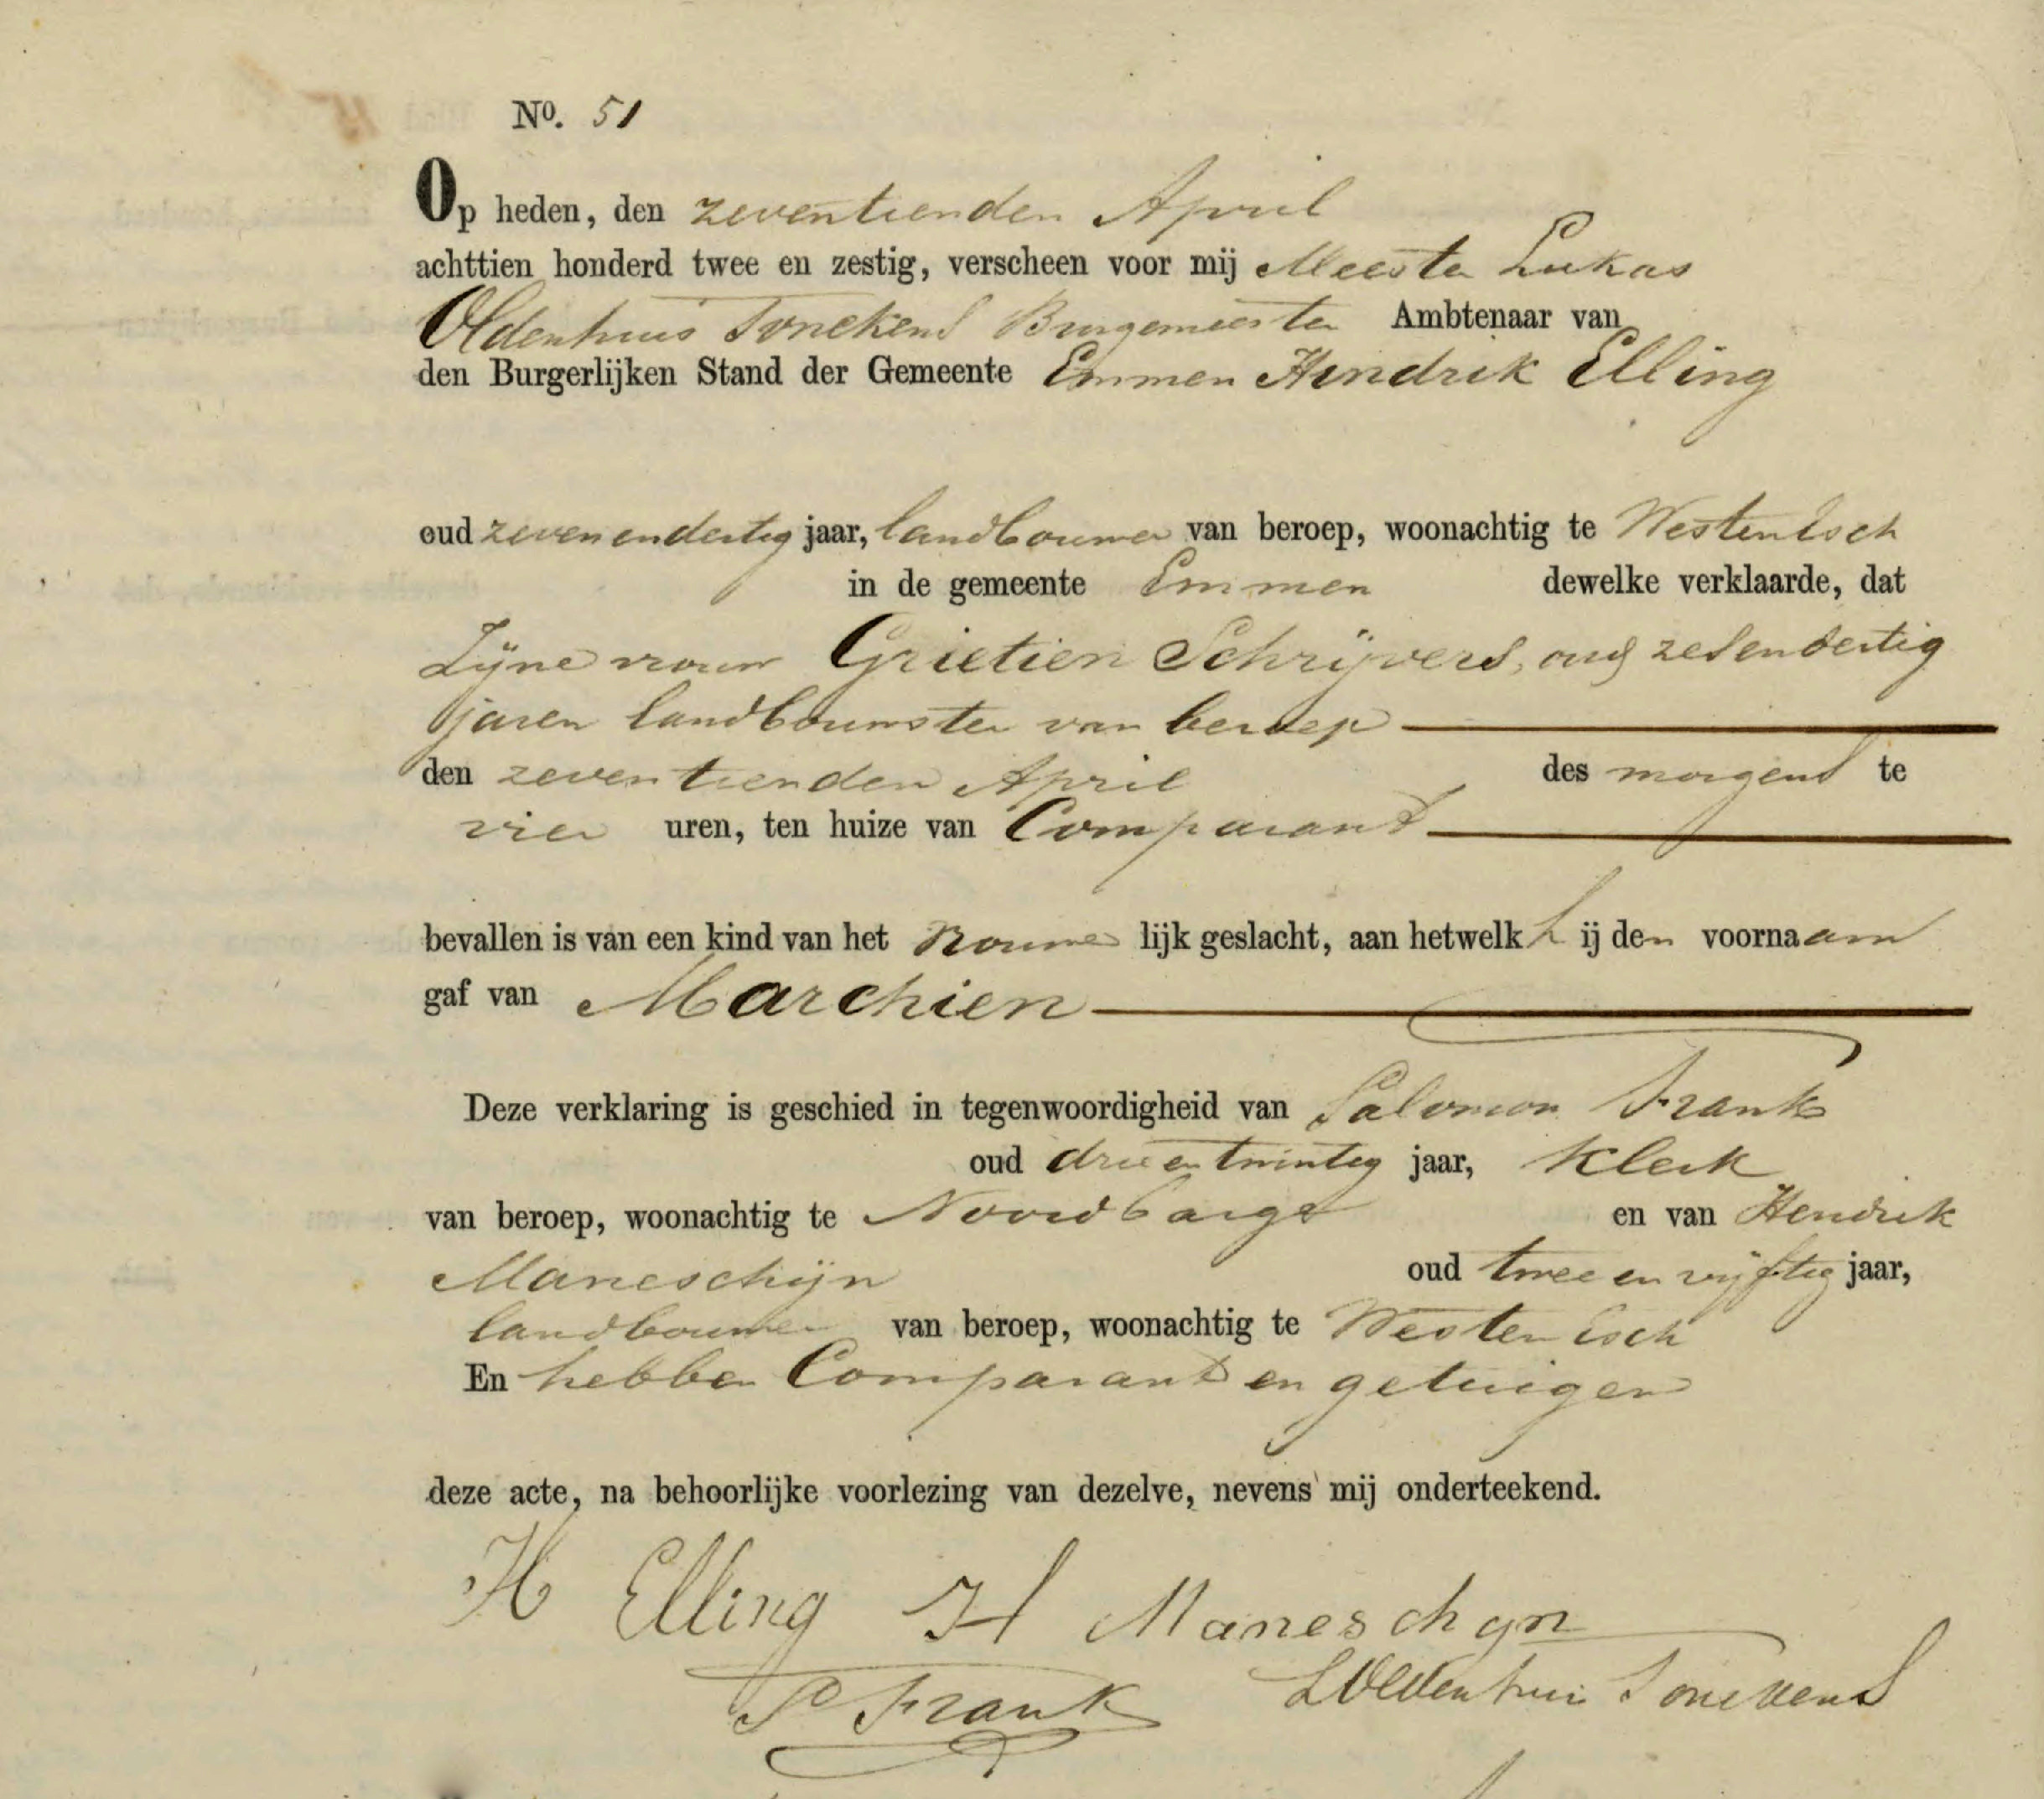 No. 51
Op heden, den zeventienden April
achttien honderd twee en zestig, verscheen voor mij Meester Lukas
Oldenhuis Tonckens Burgemeester Ambtenaar van
den Burgerlijken Stand der Gemeente Emmen Hendrik Elling
oud zevenendertig jaar, landbouwer van beroep, woonachtig te Westenesch
in de gemeente Emmen dewelke verklaarde, dat
Zijne vrouw Grietien Schrijvers, oud zesendertig
jaren landbouwster van beroep
den zeventienden April des morgens te
vier uren, ten huize van Comparant
bevallen is van een kind van het vrouwe lijk geslacht, aan hetwelk h ij den voornaam
gaf van Marchien
Deze verklaring is geschied in tegenwoordigheid van Salomon Frank
oud drie en twintig jaar, Klerk
van beroep, woonachtig te Noordbarge en van Hendrik
Maneschijn oud twee en vijftig jaar,
landbouwer van beroep, woonachtig te Westenesch
En hebben Comparant en getuigen
deze acte, na behoorlijke voorlezing van dezelve, nevens mij onderteekend.
H Elling H Maneschyn
S Frank LOldenhuis Tonckens